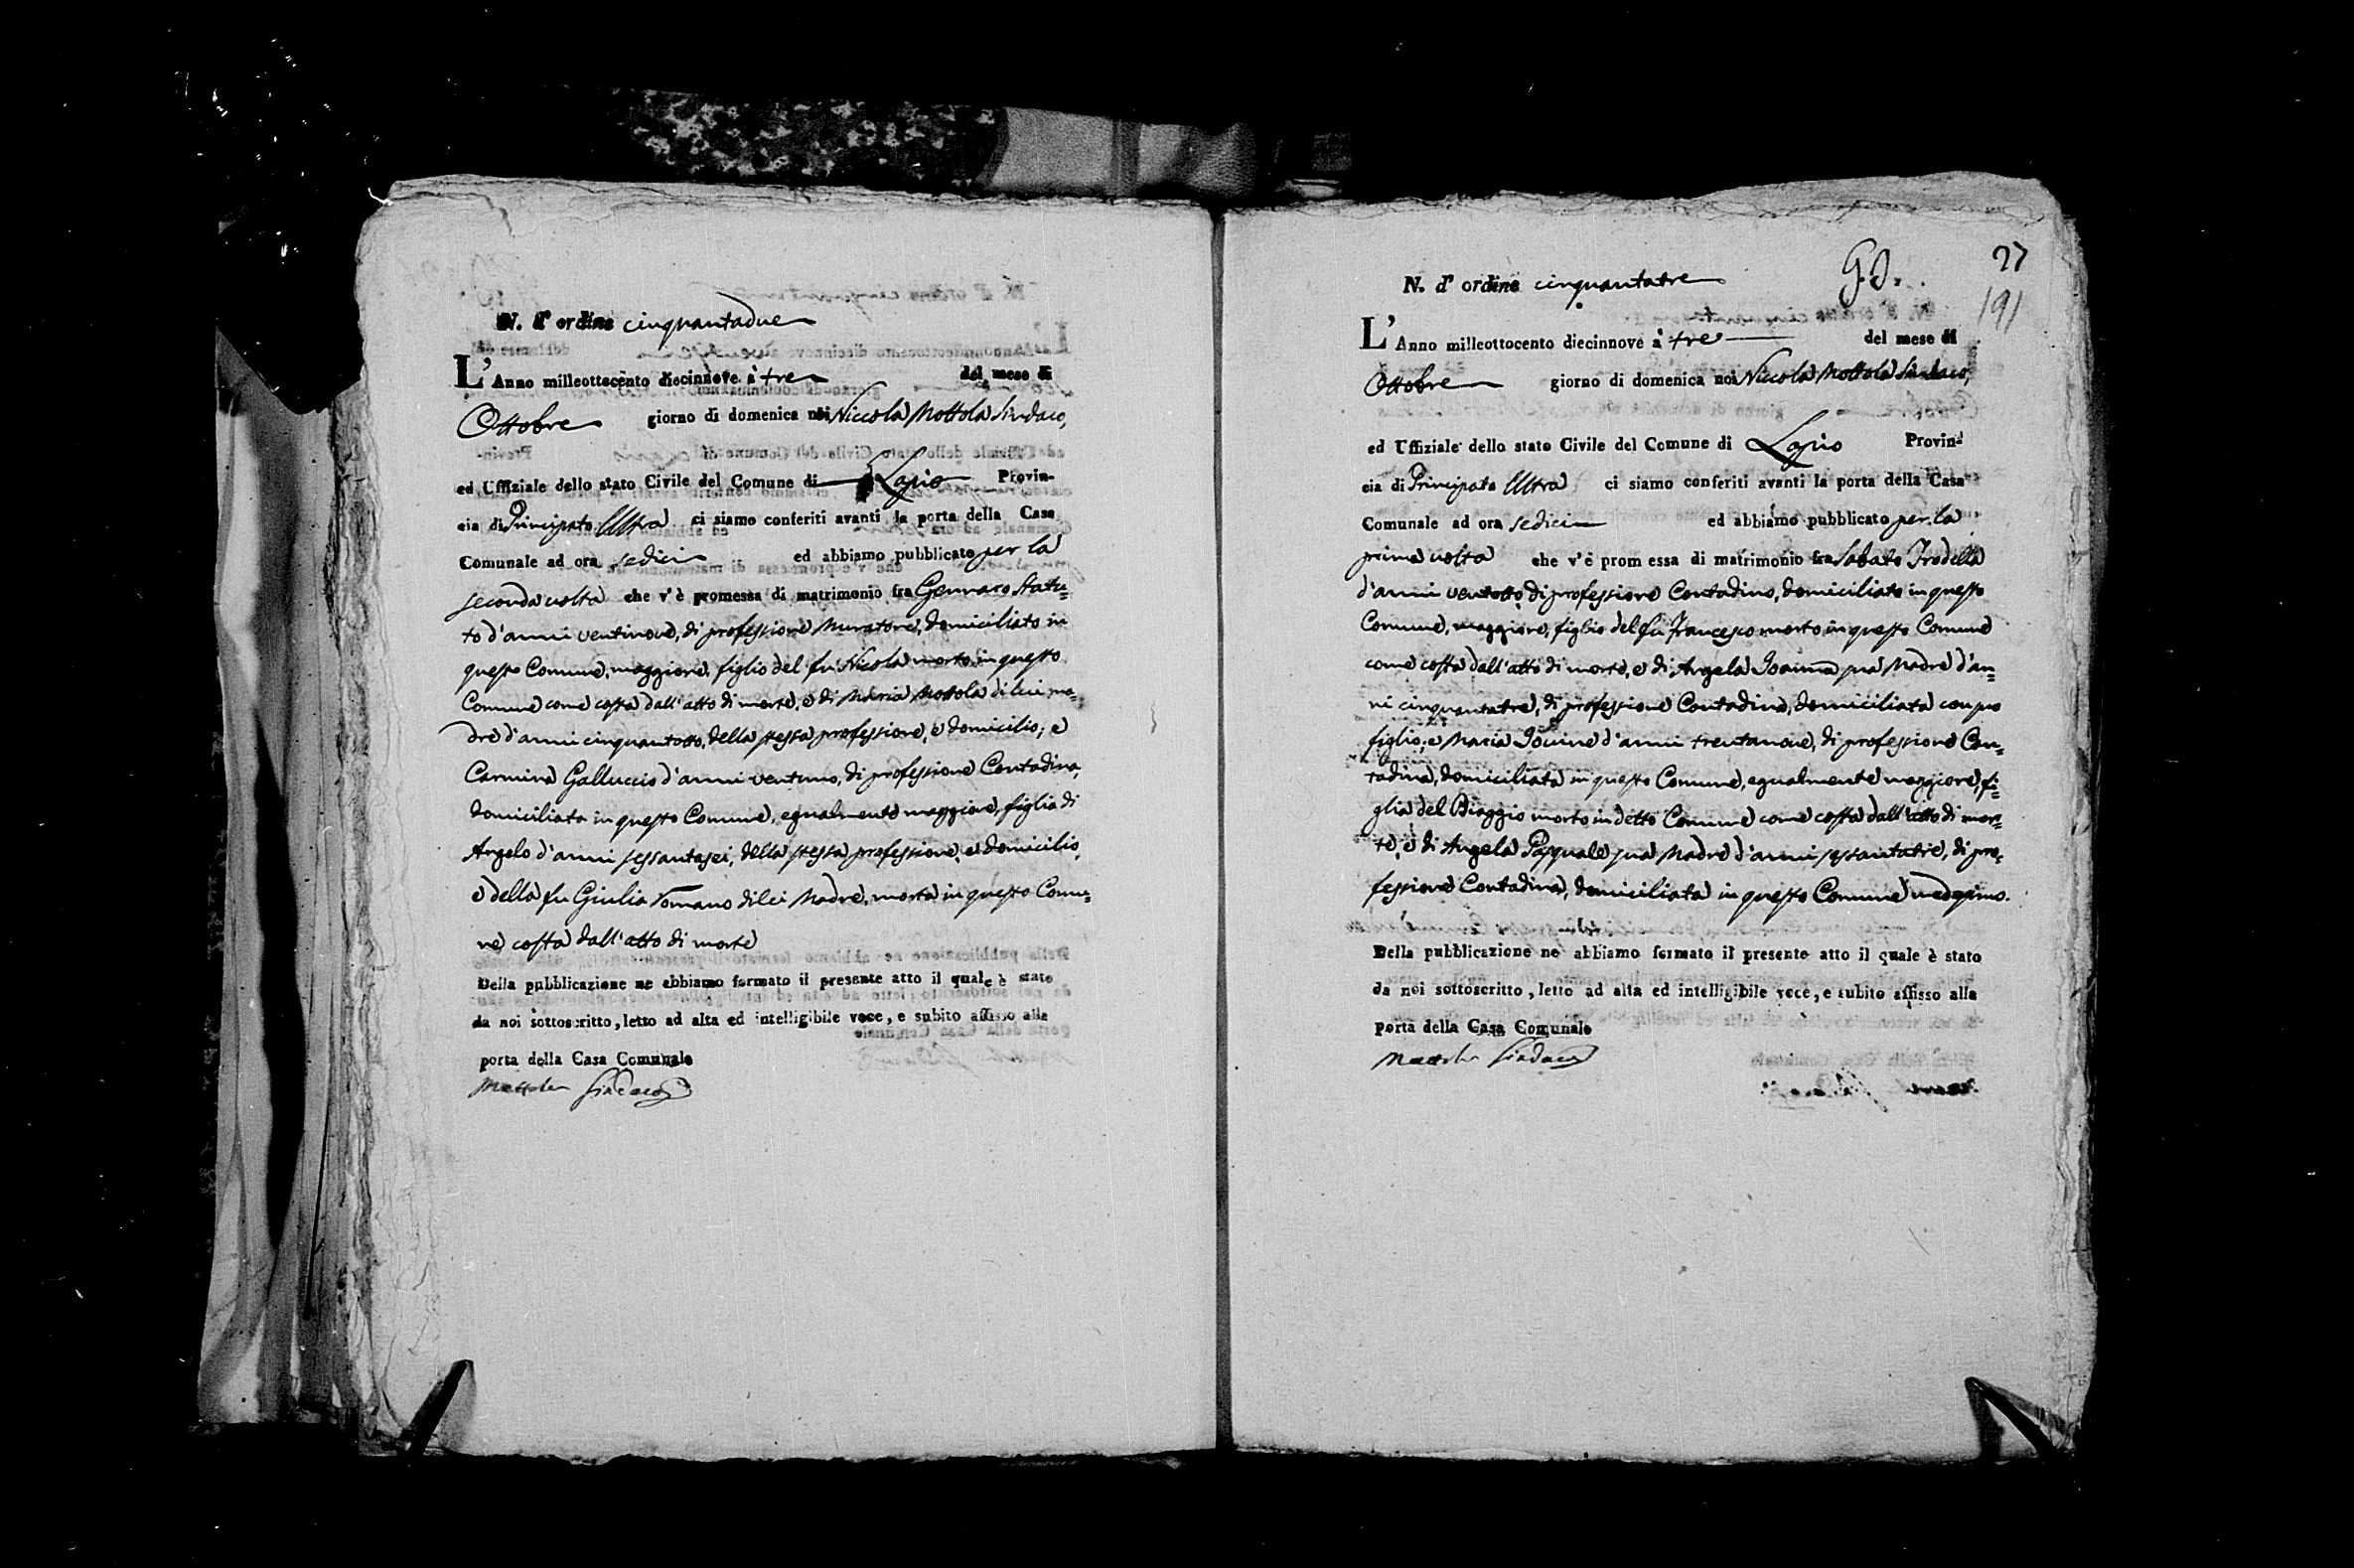 N. d' ordine cinquantadue
L' Anno milleottocento diecinnove à tre del mese di
Ottobre giorno di domenica noi Niccola Mottola Sindaco,
ed Uffiziale dello stato Civile del Comune di Lapio Provin-
cia di Principato Ultra ci siamo conferiti avanti la porta della Casa
Comunale ad ora sedici ed abbiamo pubblicato per la
seconda volta che v'è promessa di matrimonio fra Gennaro Statu=
to d'anni ventinove, di professione Muratore, domiciliato in
questo Comune, maggiore, figlio del fu Nicola morto in questo
Comune come costa dall'atto di morte, e di Maria Mottola di lui ma=
dre d'anni cinquantotto, della stessa professione, e domicilio; e
Carmina Galluccio d'anni ventuno, di professione Contadina,
domiciliata in questo Comune, egualmente maggiore, figlia di
Angelo d'anni sessantasei, della stessa professione, e domicilio,
e della fu Giulia Romano di lei Madre, morta in questo Comu=
ne costa dall'atto di morte
Della pubblicazione ne abbiamo formato il presente atto il quale è stato
da noi sottoscritto, letto ad alta ed intelligibile voce, e subito affisso alla
porta della Casa Comunale
Mottola Sindaco
27
191
N. d' ordine cinquantatre
L' Anno milleottocento diecinnove à tre del mese di
Ottobre giorno di domenica noi Niccola Mottola Sindaco,
ed Uffiziale dello stato Civile del Comune di Lapio Provin-
cia di Principato Ultra ci siamo conferiti avanti la porta della Casa
Comunale ad ora sedici ed abbiamo pubblicato per la
prima volta che v'è prom essa di matrimonio fra Sabato Trodella
d'anni ventotto, di professione Contadino, domiciliato in questo
Comune, maggiore, figlio del fu Francesco morto in questo Comune
come costa dall'atto di morte, e di Angela Joanna sua Madre d'an=
ni cinquantatre, di professione Contadina, domiciliata con suo
figlio; e Maria Jovine d'anni trentanove, di professione Con=
tadina, domiciliata in questo Comune, egualmente maggiore, fi=
glia del Biaggio morto in detto Comune come costa dall'atto di mor=
te, e di Angela Pasquale sua Madre d'anni sessantatre, di pro=
fessione Contadina, domiciliata in questo Comune medesimo.
Della pubblicazione ne abbiamo formato il presente atto il quale è stato
da noi sottoscritto, letto ad alta ed intelligibile voce, e subito affisso alla
porta della Casa Comunale
Mottola Sindaco